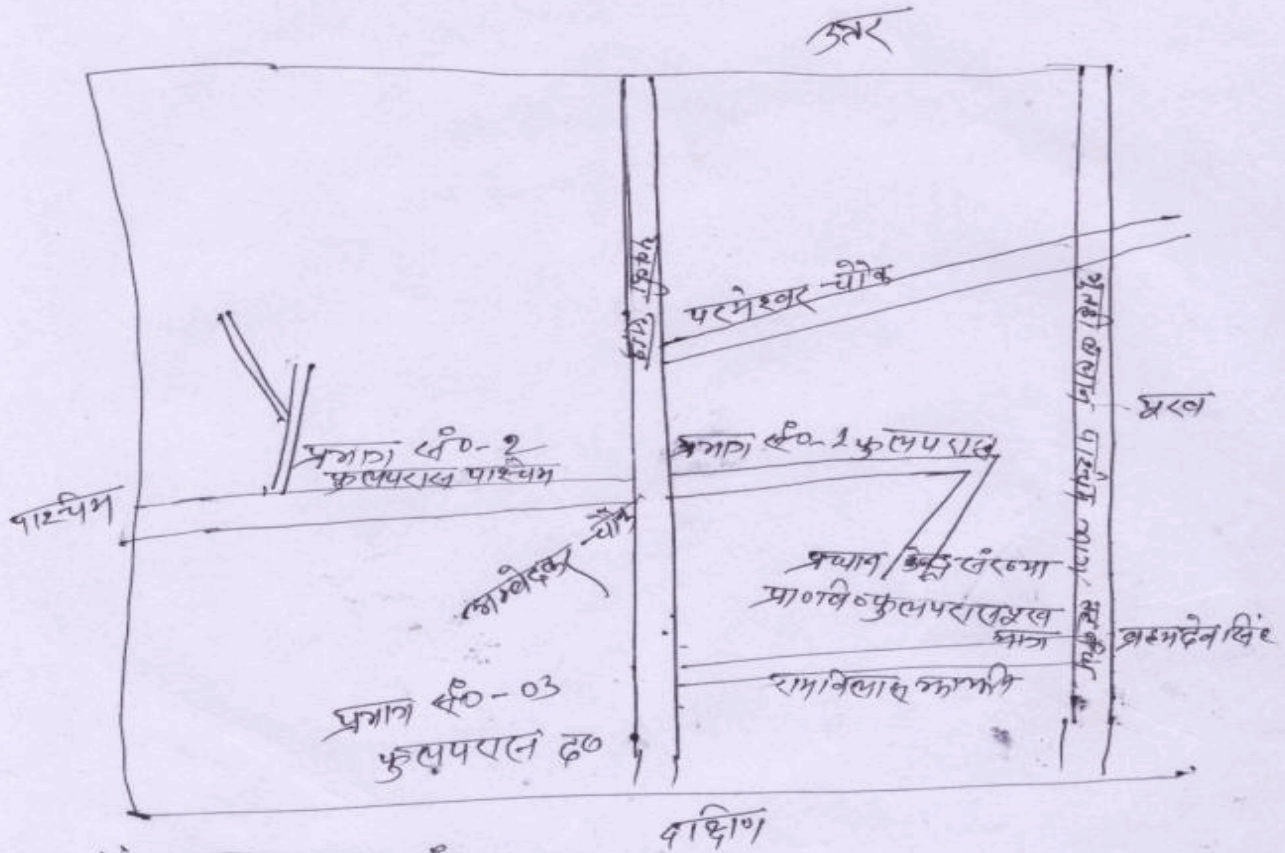 उत्तर
पक्की सड़क
परमेश्वर चौक
भुतही बलान पश्चिमी
पुरब
प्रभाग सं०-2
फुलपरास पश्चिम
प्रभाग सं०-1 फुलपरास
पश्चिम
अम्बेदकर चौक
प्रधान संख्या
प्रा०वि० फुलपरास पुरब
भाग
ब्रह्मदेव सिंह
रामविलास
प्रभाग सं०-03
फुलपरास द०
दक्षिण